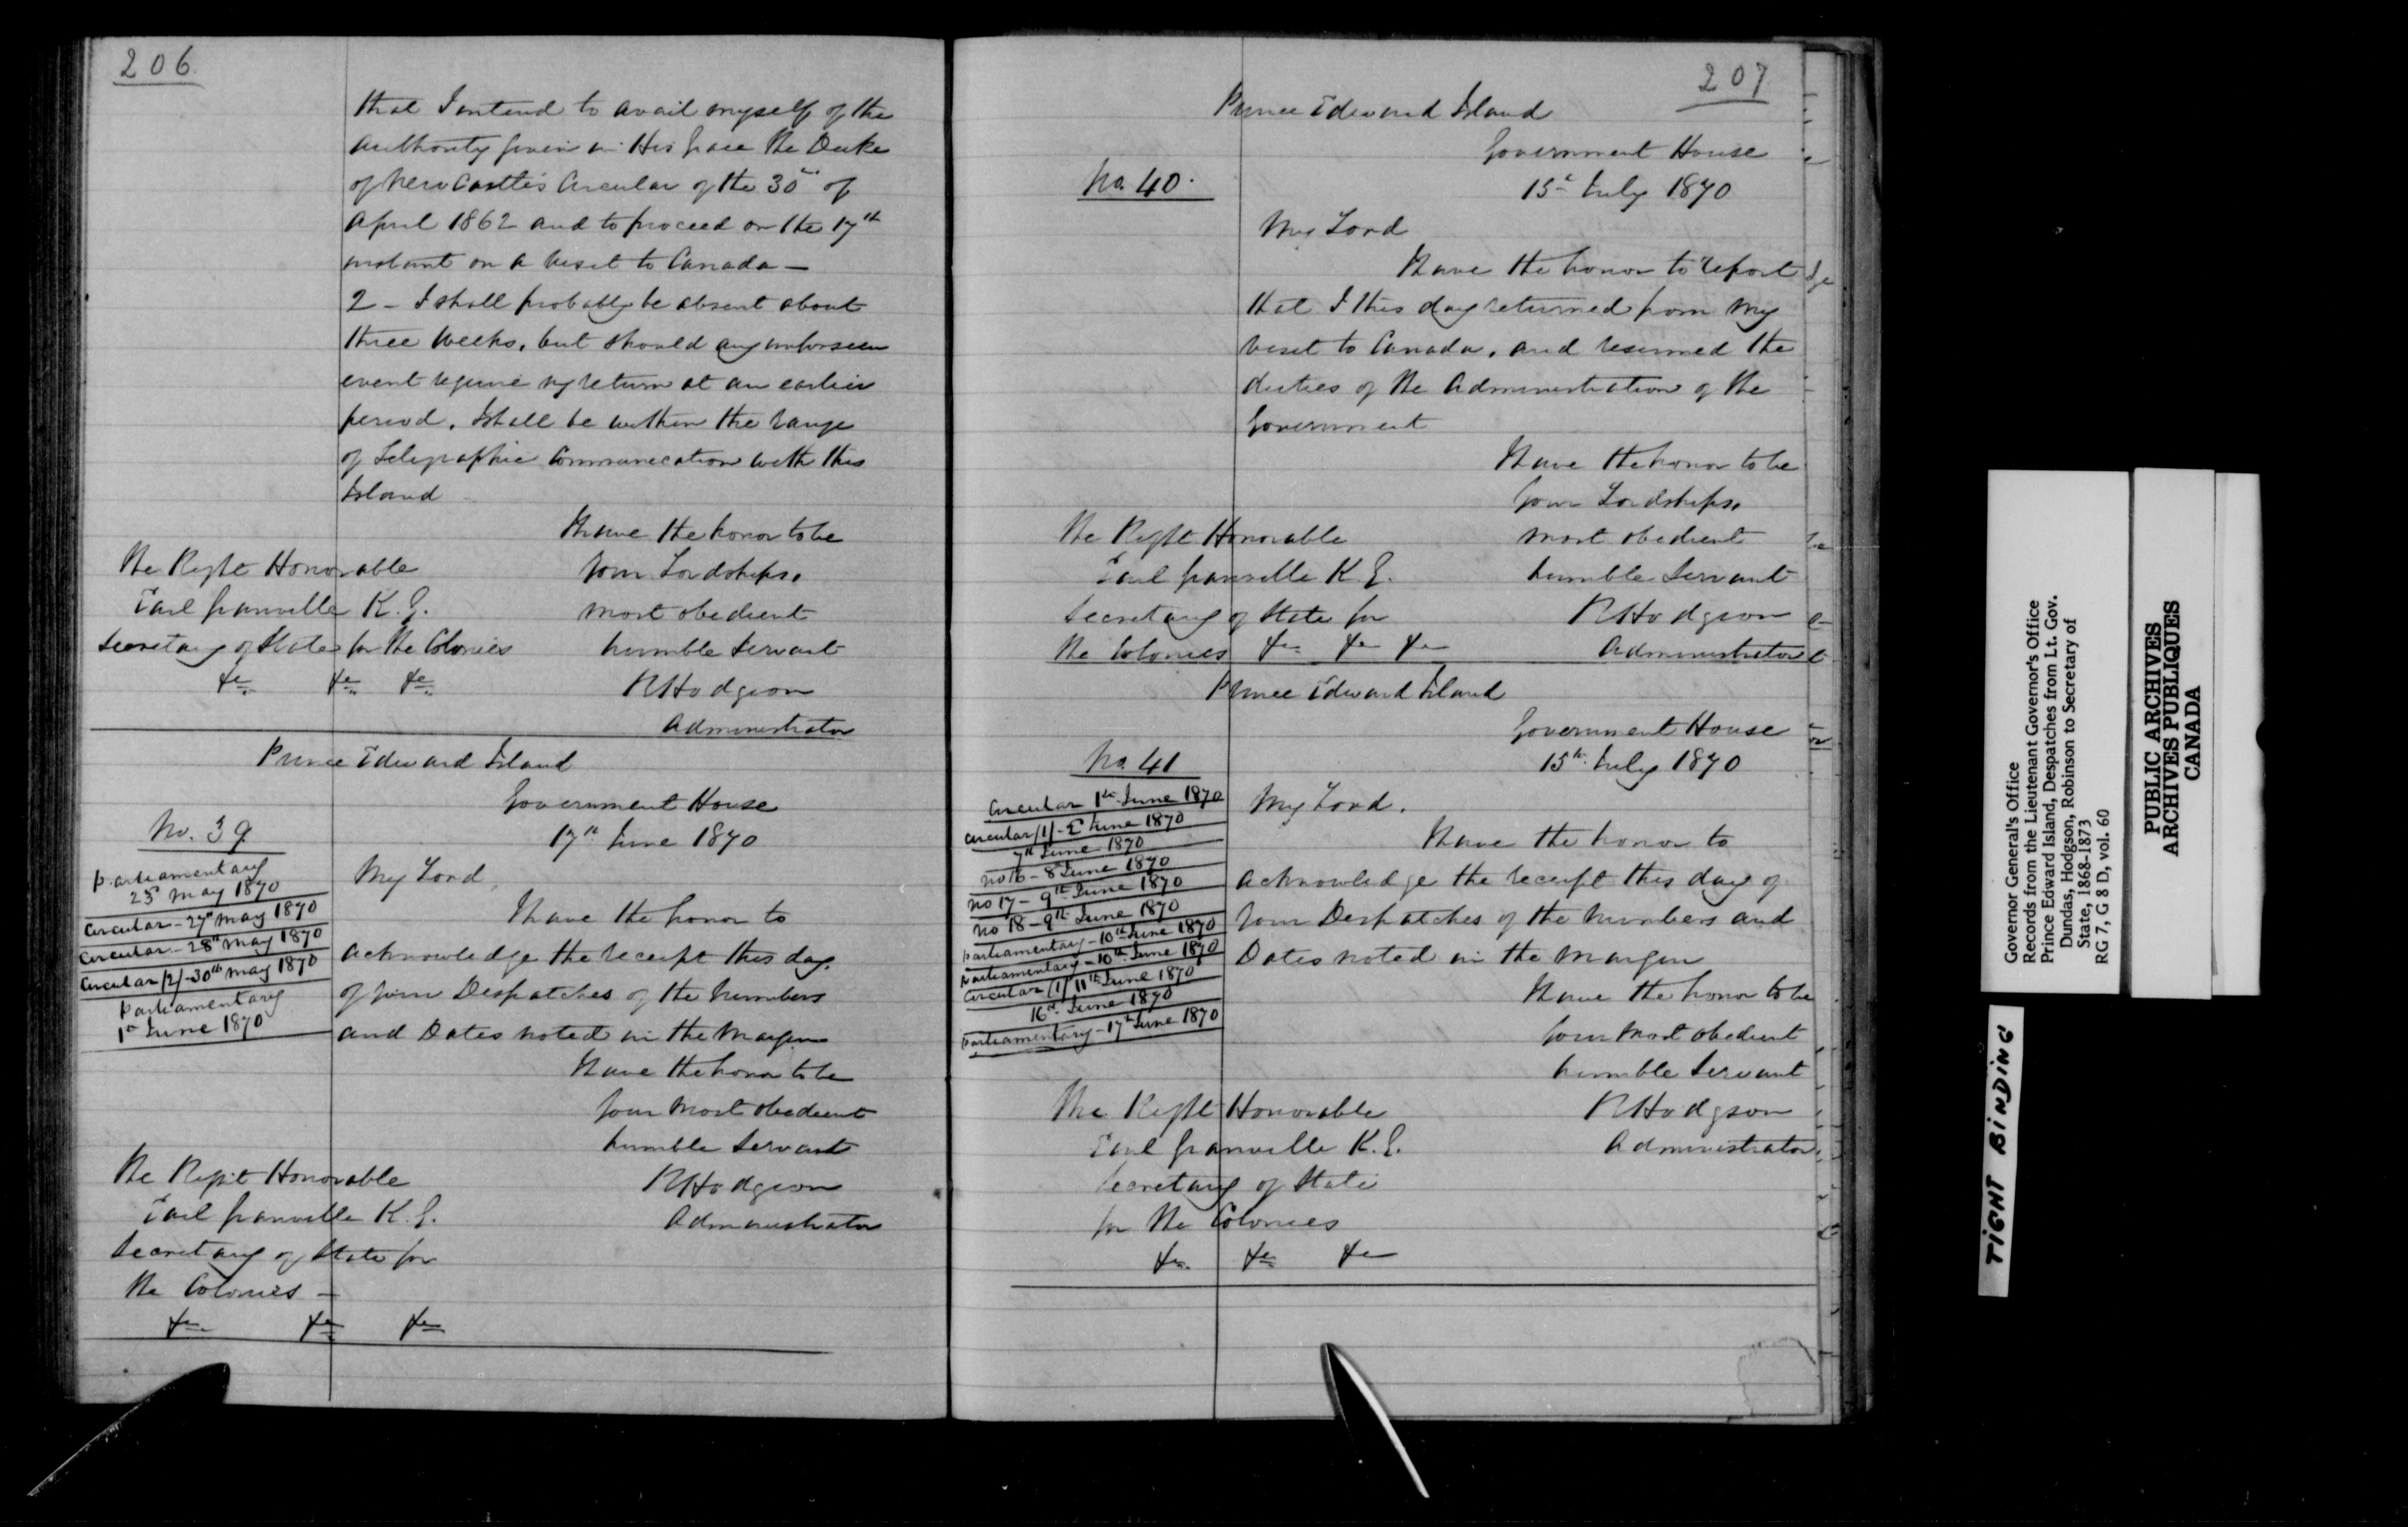 206
that I intend to avail myself of the
authority given in His Grace the Duke
of New Castle's Circular of the 30th of
April 1862 and to proceed on the 17th
instant on a visit to Canada —
2 - I shall probably be absent about
three weeks, but should any unforseen
event require my return at an earlier
period, I shall be within the range
of Telegraphic Communication with this
Island
I have the honor to be
Your Lordships.
most obedient
humble Servant
RHodgson
Administrator
The Right Honorable
Earl Granville K.G.
Secretary of State for the Colonies
&c. &c. &c.
Prince Edward Island
Government House
17th June 1870
No. 39
Parliamentary
25 May 1870
Circular - 27th May 1870
Circular - 28th May 1870
Circular /2/ - 30th May 1870
Parliamentary
1st June 1870
My Lord,
I have the honor to
acknowledge the receipt this day.
of your Despatches of the numbers
and Dates noted in the Margin
I have the honor to be
Your Most obedient
humble Servant
RHodgson
Administrator
The Right Honorable
Earl Granville K.G.
Secretary of State for
the Colonies —
&c. &c. &c.
207
Prince Edward Island
Government House
15th July 1870
No. 40.
My Lord
I have the honor to report
that I this day returned from my
visit to Canada, and resumed the
duties of the Administration of the
Government
I have the honor to be
Your Lordships.
most obedient
humble Servant
RHodgson
Administrator
The Right Honorable
Earl Granville K.G.
Secretary of State for
the Colonies &c. &c. &c.
Prince Edward Island
Government House
15th July 1870
No. 41
Circular 1st June 1870
Circular /1/ - 2d June 1870
7th June 1870
No 16 - 8th June 1870
No 17 - 9th June 1870
No 18 - 9th June 1870
Parliamentary - 10th June 1870
Parliamentary - 10th June 1870
Circular /1/ 11th June 1870
16th June 1870
Parliamentary - 17th June 1870
My Lord.
I have the honor to
acknowledge the receipt this day of
your Despatches of the numbers and
Dates noted in the Margin
I have the honor to be
Your Most obedient
humble Servant
RHodgson
Administrator.
The Right Honorable
Earl Granville K.G.
Secretary of State
for the Colonies
&c. &c. &c.
Governor General's Office
Records from the Lieutenant Governor's Office
Prince Edward Island, Despatches from Lt. Gov.
Dundas, Hodgson, Robinson to Secretary of
State, 1868-1873
RG 7, G 8 D, vol. 60
PUBLIC ARCHIVES
ARCHIVES PUBLIQUES
CANADA
TIGHT BINDING